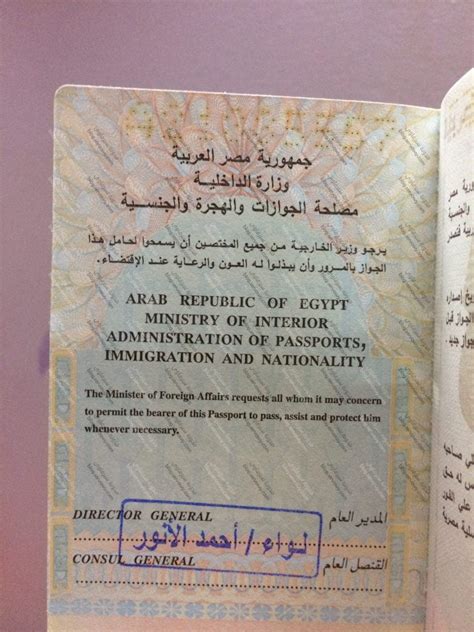 جمهورية مصر العربية
وزارة الداخلية
مصلحة الجوازات والهجرة والجنسية
يرجو وزير الخارجية من جميع المختصين أن يسمحوا لحامل هذا
الجواز بالمرور وأن يبذلوا له العون والرعاية عند الإقتضاء.
ARAB REPUBLIC OF EGYPT
MINISTRY OF INTERIOR
ADMINISTRATION OF PASSPORTS,
IMMIGRATION AND NATIONALITY
The Minister of Foreign Affairs requests all whom it may concern
to permit the bearer of this Passport to pass, assist and protect him
whenever necessary.
DIRECTOR GENERAL المدير العام
لواء / أحمد الأنور
CONSUL GENERAL القنصل العام